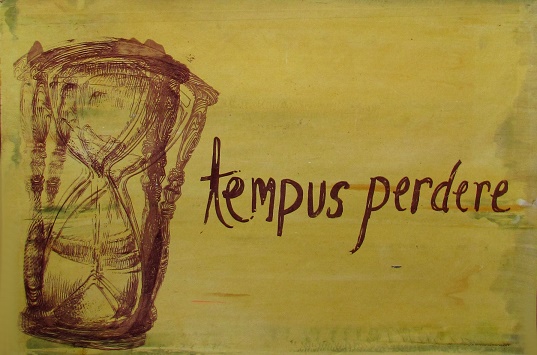 tempus perdere